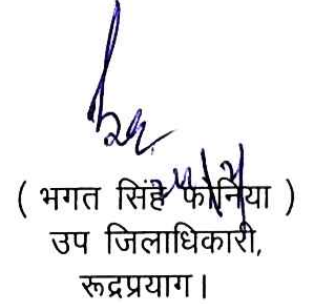 ( भगत सिंह फोनिया )
उप जिलाधिकारी,
रूद्रप्रयाग।